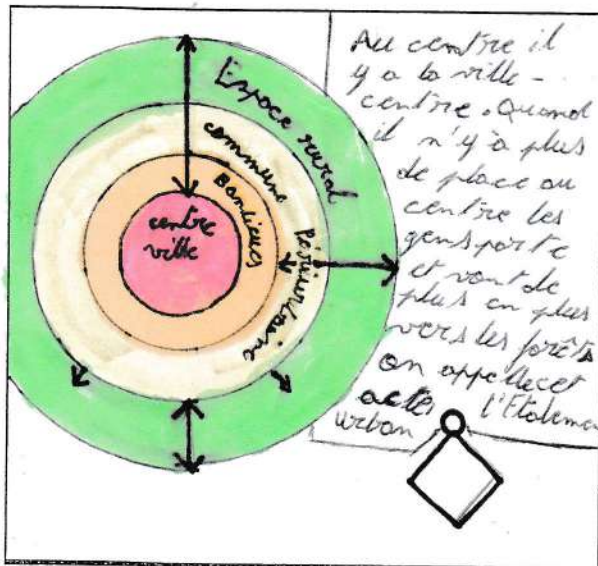 Espace rural
commune
Banlieues
centre
ville
Périurbaine
Au centre il
y a la ville -
centre. Quand
il n'y à plus
de place au
centre les
gens parte
et vont de
plus en plus
vers les forêts
on appelle cet
acte l'Etaleme
urban